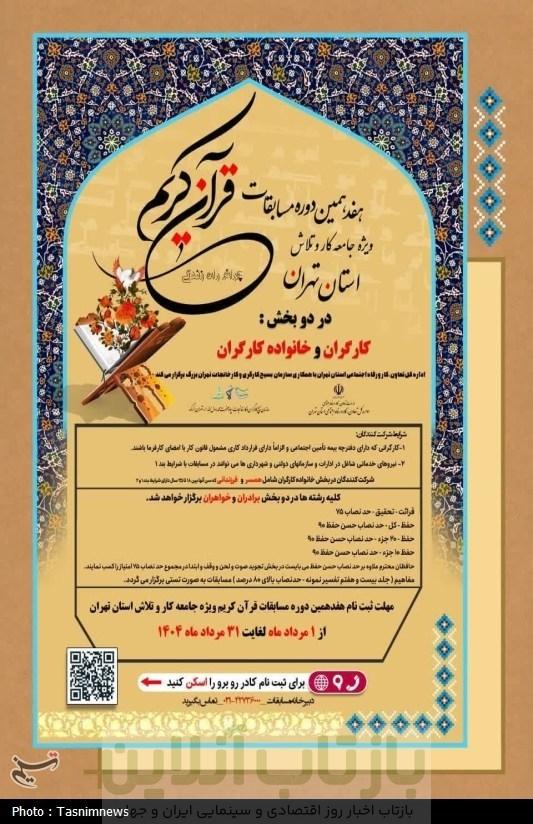 هفدهمین دوره مسابقات
قرآن کریم
ویژه جامعه کار و تلاش
استان تهران
چراغ راه زندگی
در دو بخش :
کارگران و خانواده کارگران
اداره کل تعاون، کار و رفاه اجتماعی استان تهران با همکاری سازمان بسیج کارگری و کارخانجات تهران بزرگ برگزار می کند
شرایط شرکت کنندگان:
۱- کارگرانی که دارای دفترچه بیمه تأمین اجتماعی و الزاماً دارای قرارداد کاری مشمول قانون کار با امضای کارفرما باشند.
۲- نیروهای خدماتی شاغل در ادارات و سازمانهای دولتی و شهرداری ها می توانند در مسابقات با شرایط بند ۱
شرکت کنندگان در بخش خانواده کارگران شامل همسر و فرزندانی که سن آنها بین
کلیه رشته ها در دو بخش برادران و خواهران برگزار خواهد شد.
قرائت - تحقیق - حد نصاب ۷۵
حفظ - کل - حد نصاب حسن حفظ ۹۰
حفظ - ۲۰ جزء - حد نصاب حسن حفظ ۹۰
حفظ ۱۰ جزء - حد نصاب حسن حفظ ۹۰
حافظان محترم علاوه بر حد نصاب حسن حفظ می بایست در بخش تجوید صوت و لحن وقف و ابتدا در مجموع حد نصاب ۷۵ امتیاز را کسب نمایند.
مفاهیم ( جلد بیست و هفتم تفسیر نمونه - حدنصاب بالای ۸۰ درصد ) مسابقات به صورت تستی برگزار می گردد.
مهلت ثبت نام هفدهمین دوره مسابقات قرآن کریم ویژه جامعه کار و تلاش استان تهران
از ۱ مرداد ماه لغایت ۳۱ مرداد ماه ۱۴۰۴
برای ثبت نام کادر رو برو را اسکن کنید
دبیرخانه مسابقات _ ۲۲۷۳۶۰۰۰-۰۲۱ _ تماس بگیرید
تسنیم
بازتاب آنلاین
بازتاب اخبار روز اقتصادی و سینمایی ایران و جهان
Photo : Tasnimnews